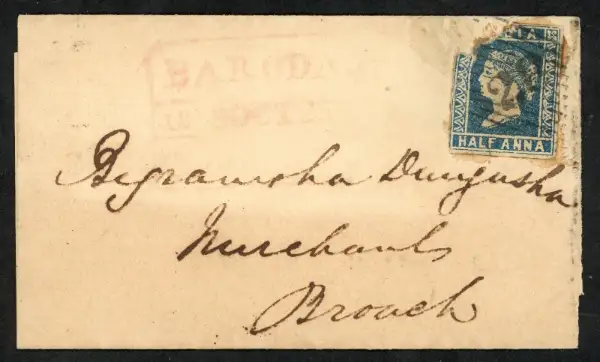 BARODA
INDIA
HALF ANNA
Byramsha Dungusha
Merchants
Broach